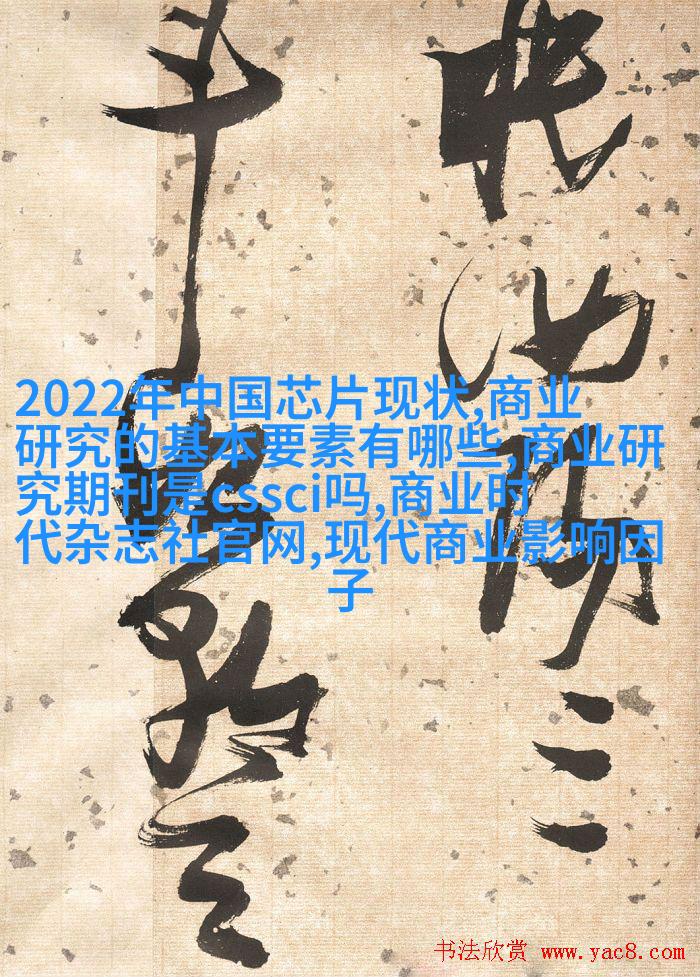 眠汝陽三
斗始朝天
2022年中国芯片现状,商业
研究的基本要素有哪些,商业研
究期刊是cssci吗,商业时
代杂志社官网,现代商业影响因
子
书法欣赏 www.yac8.com